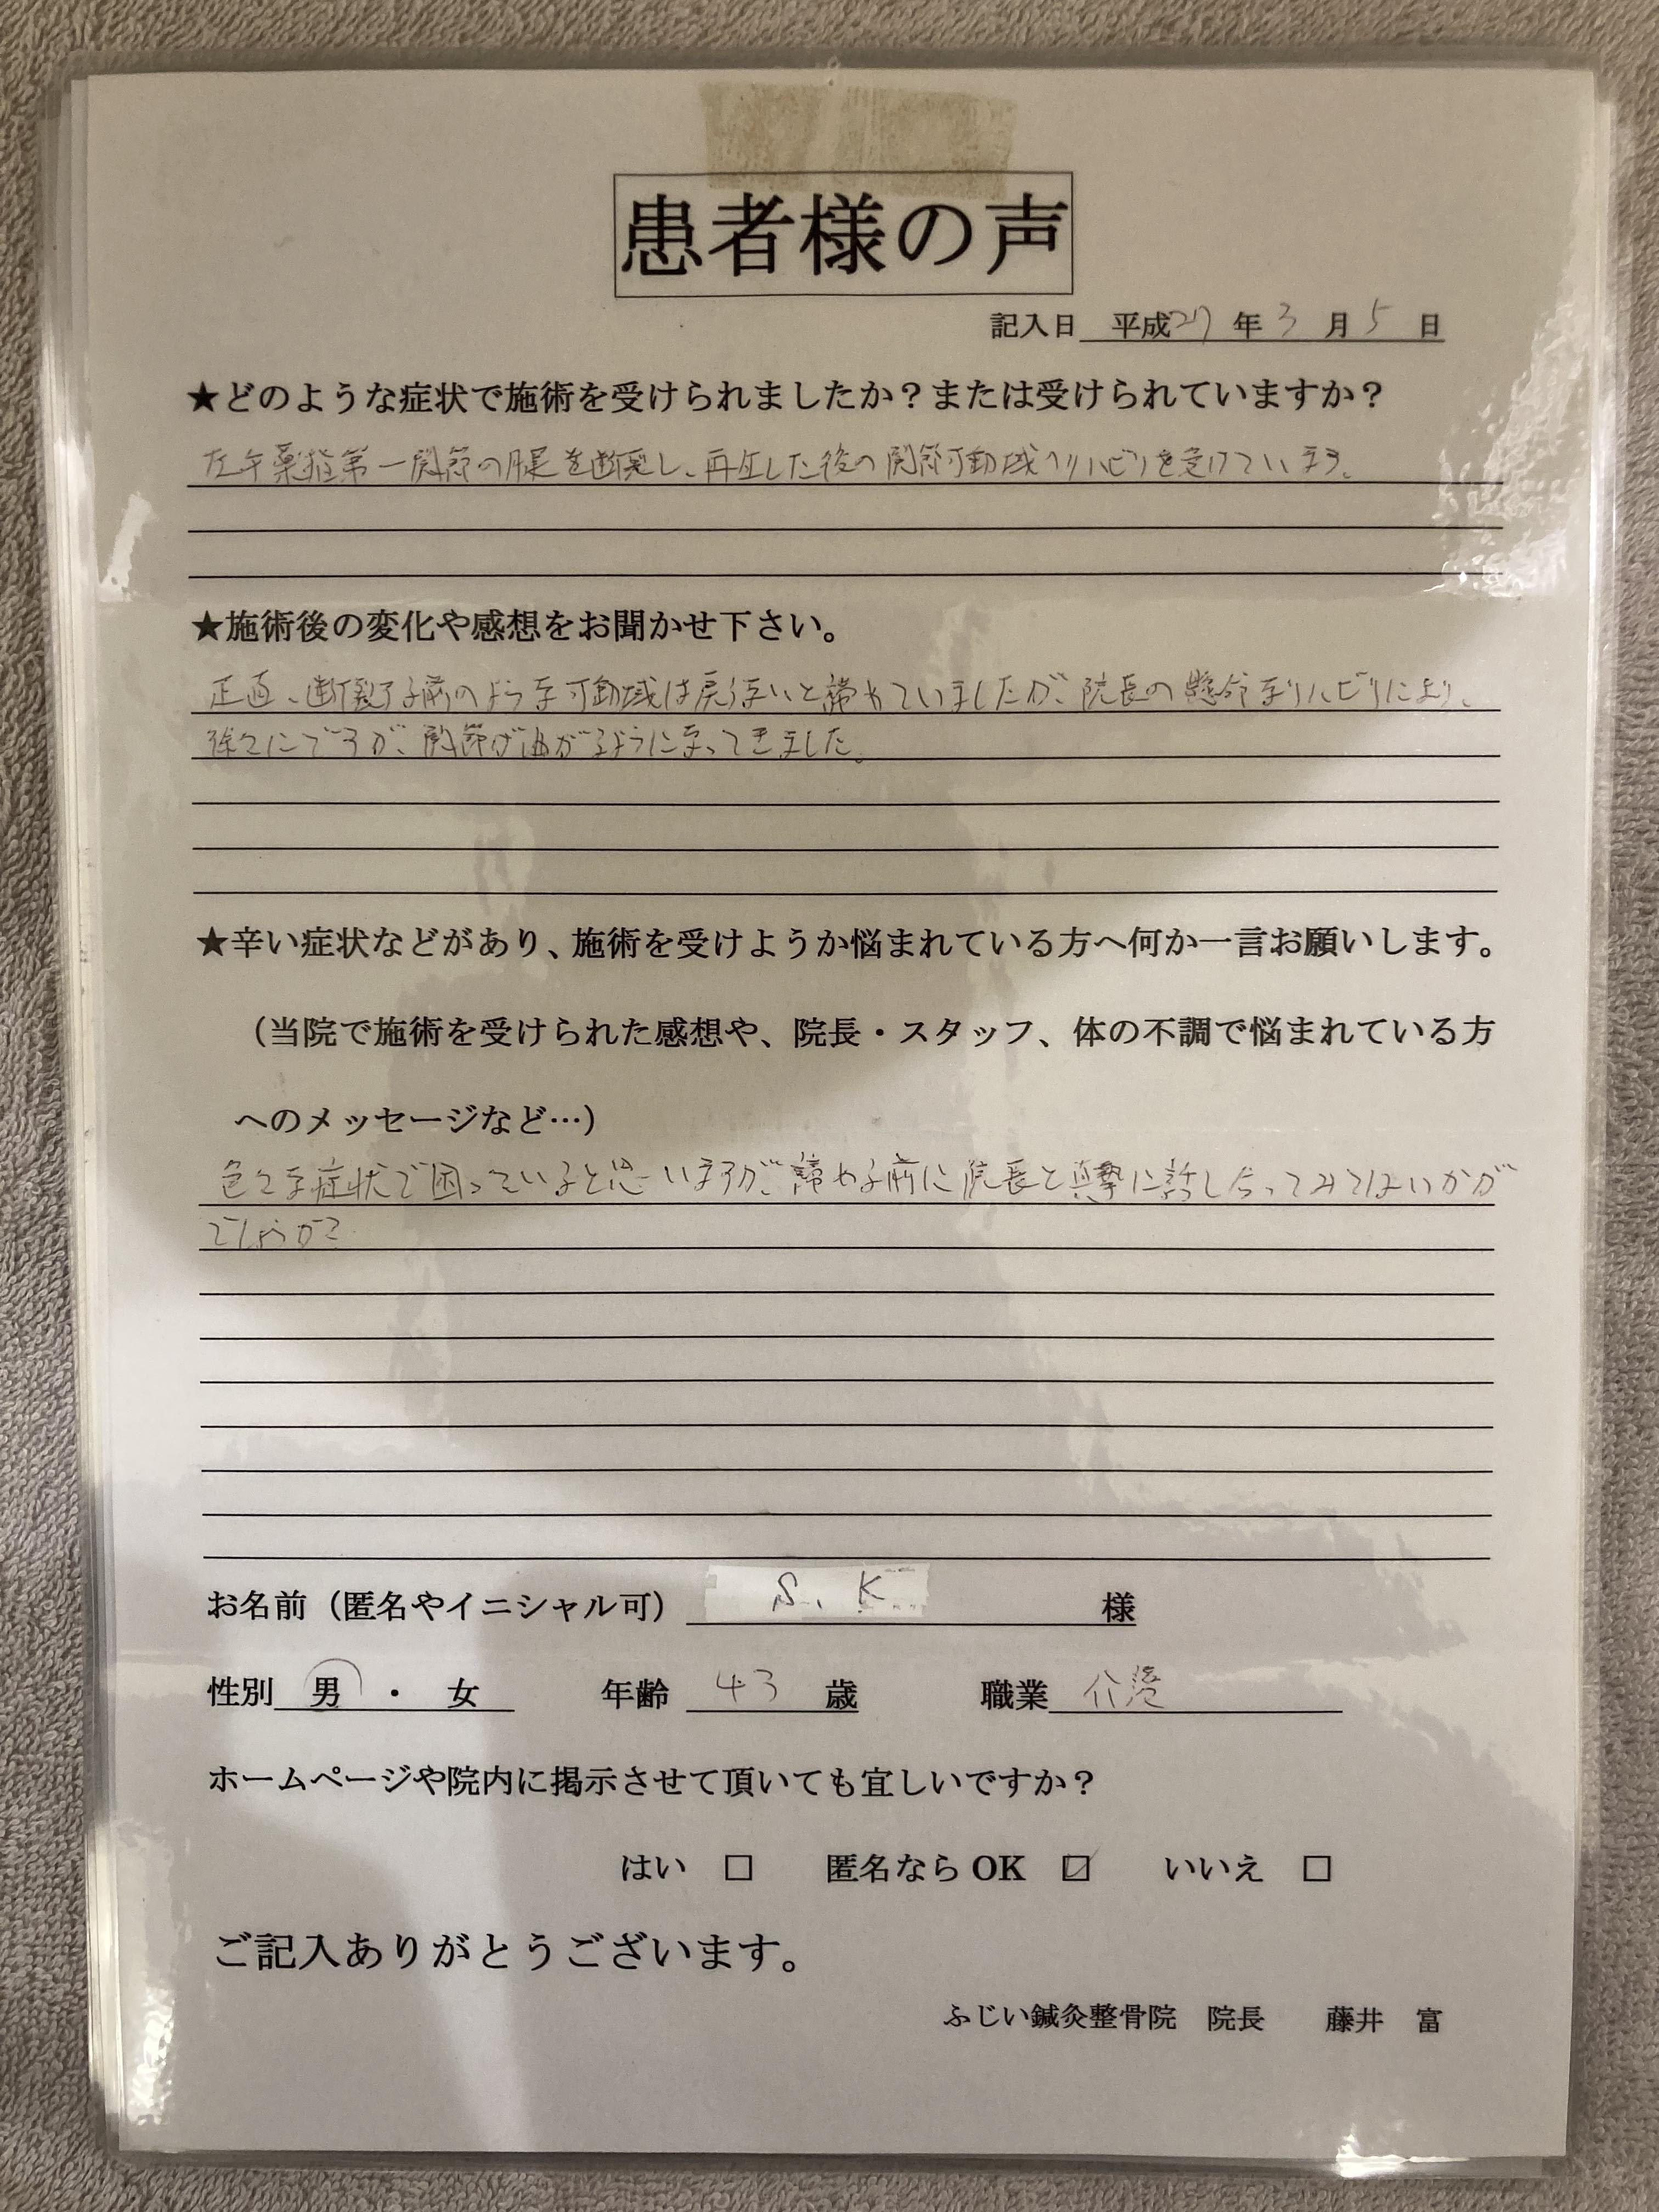 患者様の声
記入日 平成27年3月5日
★どのような症状で施術を受けられましたか？または受けられていますか？
左手薬指第一関節の腱を断裂し、再生した後の関節可動域のリハビリを受けています。
★施術後の変化や感想をお聞かせ下さい。
正直、断裂する前のような可動域は戻らないと諦めていましたが、院長の懸命なリハビリにより、
徐々にですが、関節が曲がるようになってきました。
★辛い症状などがあり、施術を受けようか悩まれている方へ何か一言お願いします。
（当院で施術を受けられた感想や、院長・スタッフ、体の不調で悩まれている方
へのメッセージなど…）
色々な症状で困っていると思いますが、諦める前に院長と真摯に話し合ってみてはいかが
でしょうか？
お名前（匿名やイニシャル可） S. K 様
性別 男 ・ 女 年齢 43 歳 職業 介護
ホームページや院内に掲示させて頂いても宜しいですか？
はい □ 匿名なら OK ☑ いいえ □
ご記入ありがとうございます。
ふじい鍼灸整骨院 院長 藤井 富